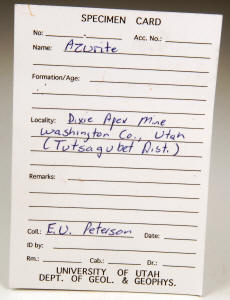 SPECIMEN CARD
No: Acc. No.:
Name: Azurite
Formation/Age:
Locality: Dixie Apex Mine
Washington Co., Utah
(Tutsagubet Dist.)
Remarks:
Coll.: E.U. Peterson Date:
ID by:
Rm.: Cab.: Dr.:
UNIVERSITY OF UTAH
DEPT. OF GEOL. & GEOPHYS.